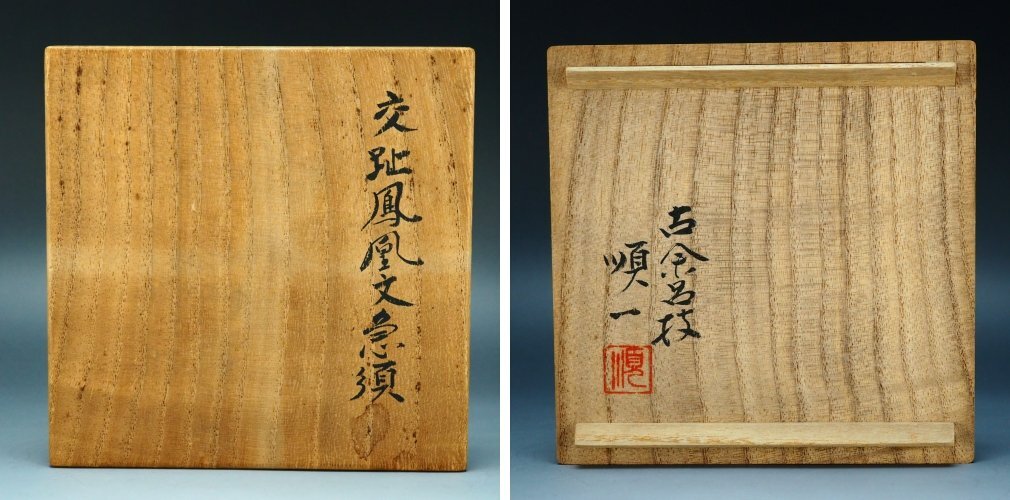 交趾鳳凰文急須
古奈呂技
順一
順